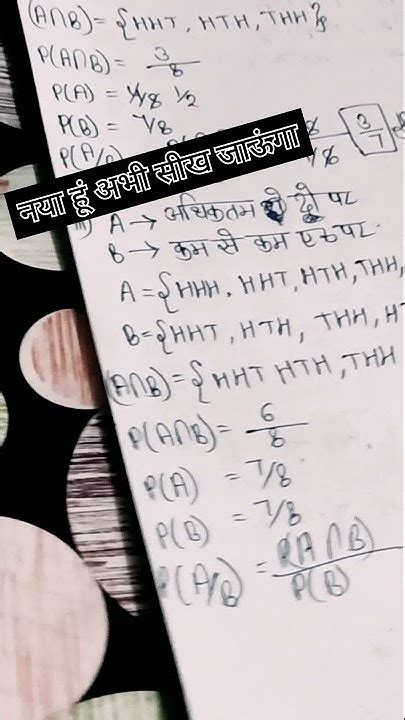 (A∩B) = {HHT, HTH, THH}
P(A∩B) = 3/8
P(A) = 4/8 1/2
P(B) = 7/8
P(A/B)
3/7
नया हूं अभी सीख जाऊंगा
A → अधिकतम दो पट
B → कम से कम एक पट
A = {HHH, HHT, HTH, THH,
B = {HHT, HTH, THH, H
(A∩B) = {HHT HTH, THH
P(A∩B) = 6/8
P(A) = 7/8
P(B) = 7/8
P(A/B) = P(A∩B)/P(B)